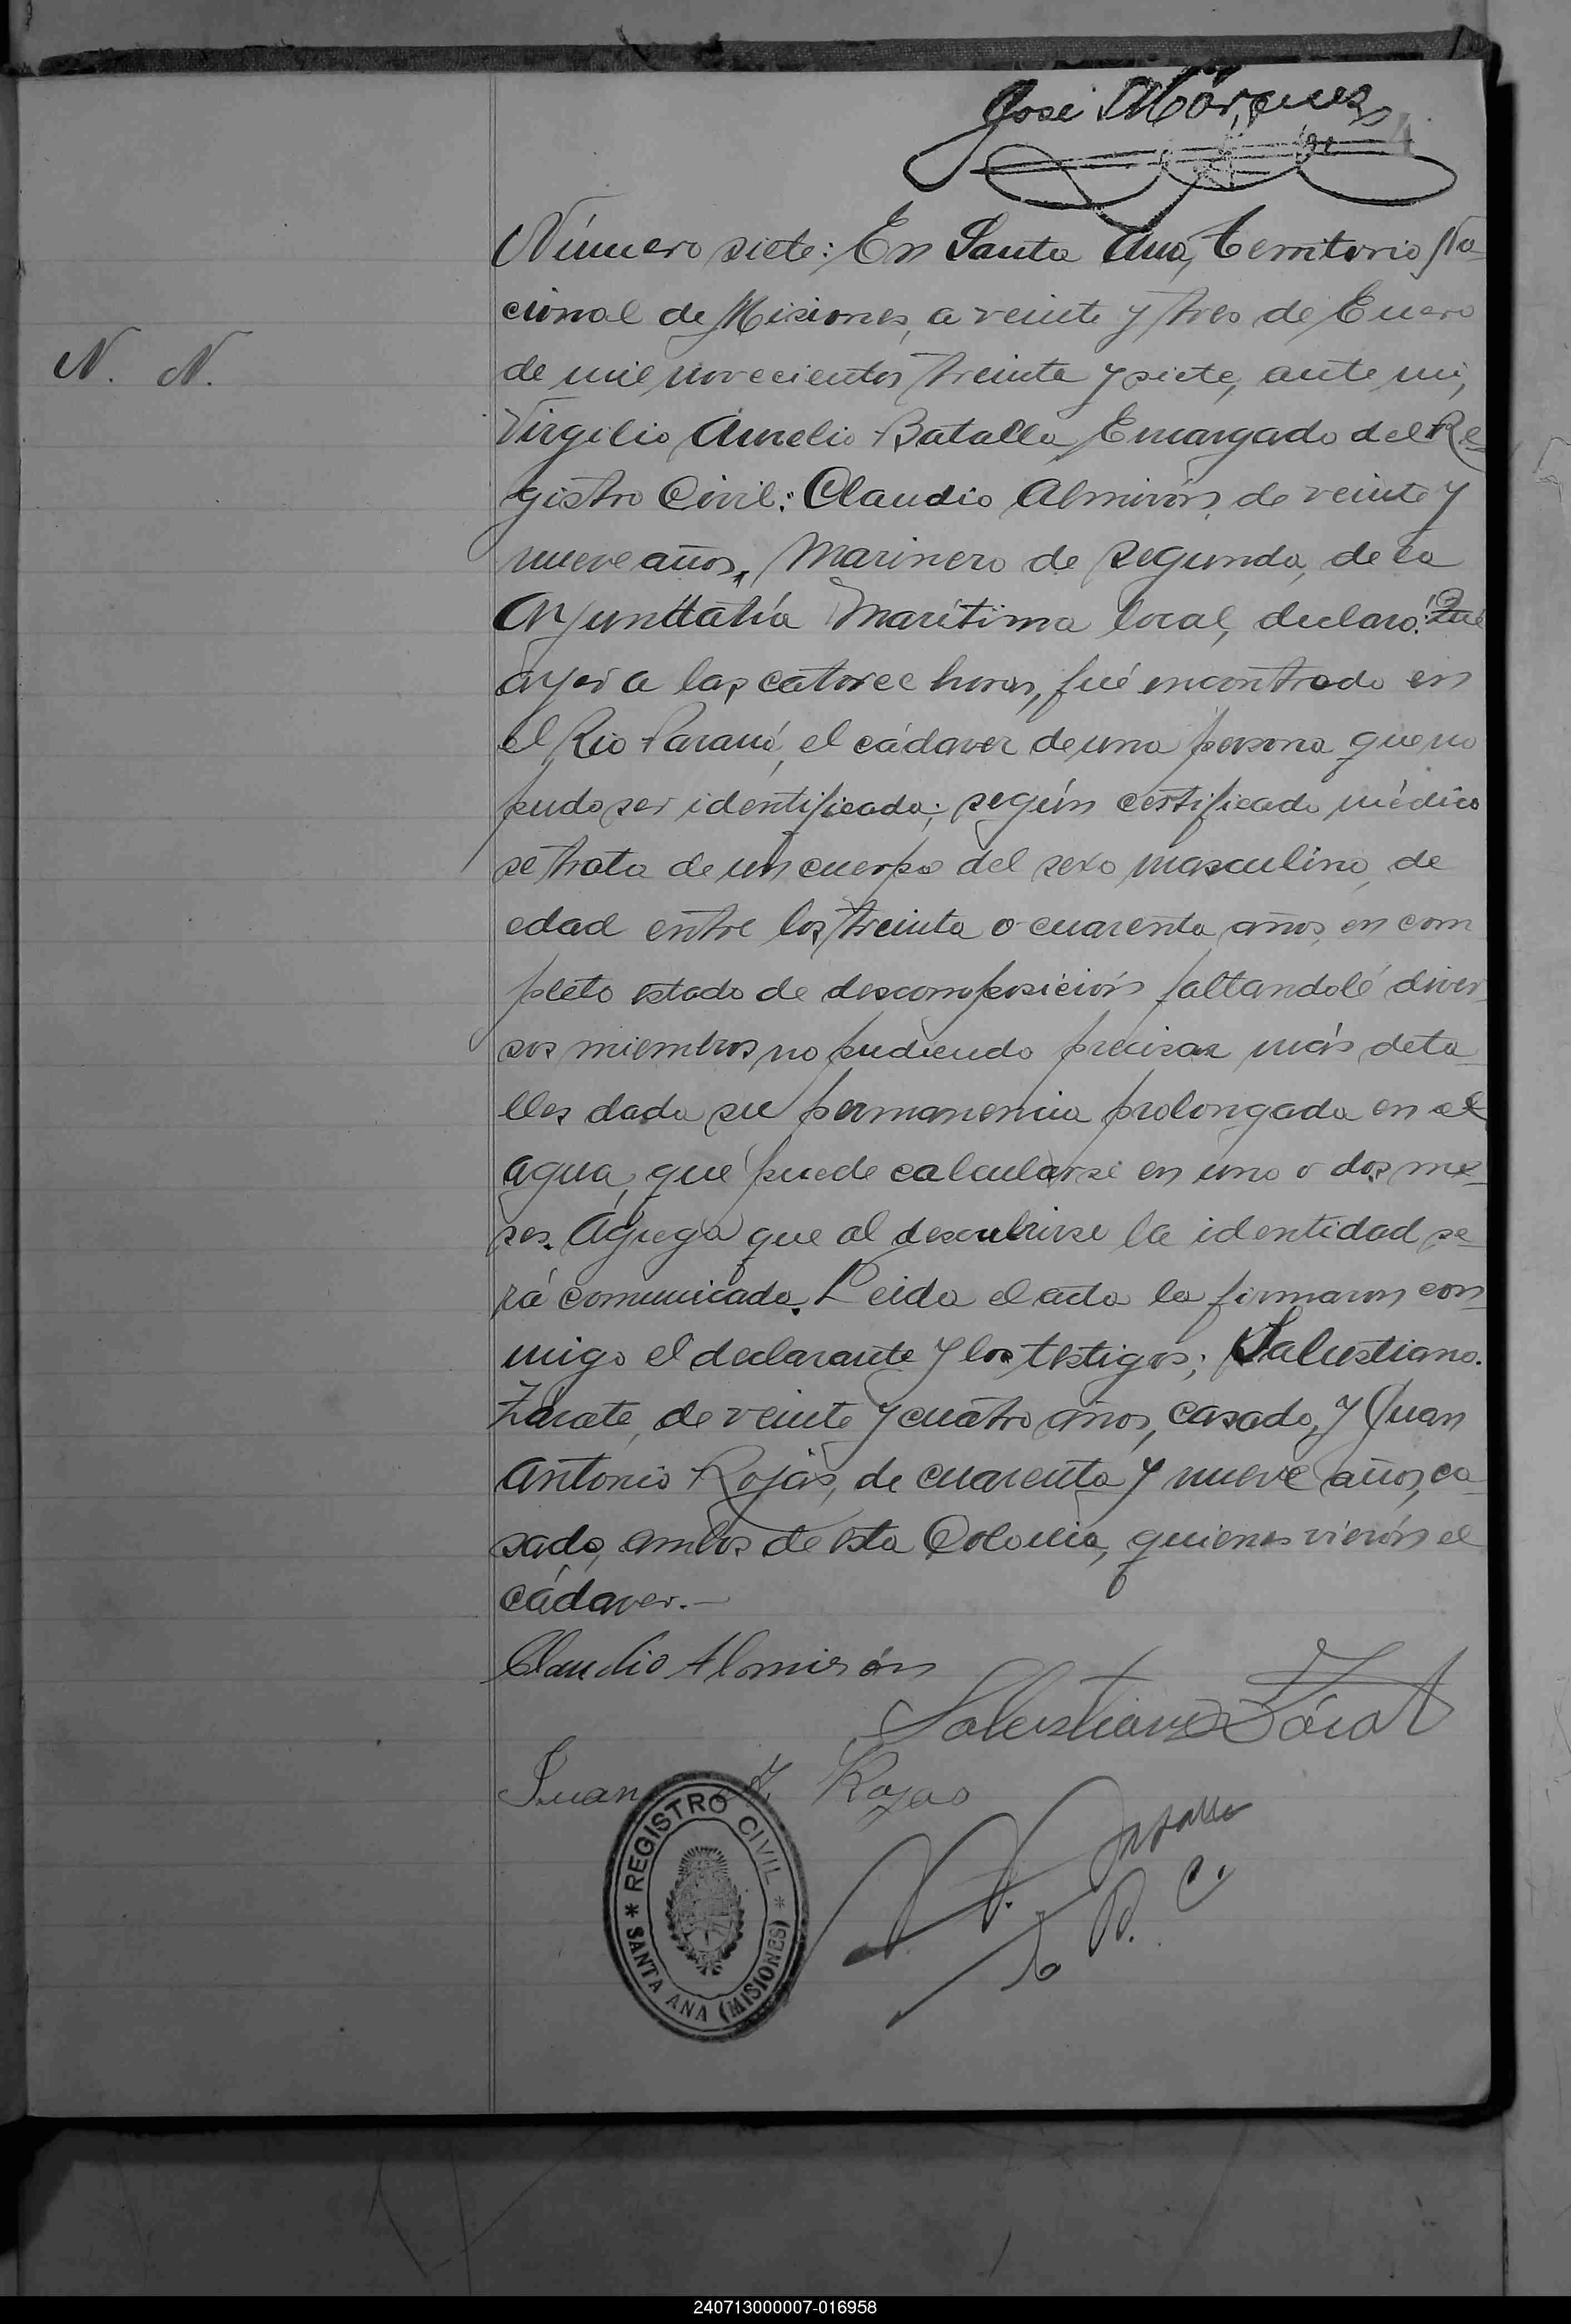 José Márquez
4
Número siete: En Santa Ana, Territorio Na-
cional de Misiones, a veinte y tres de Enero
N. N.
de mil novecientos treinta y siete, ante mi,
Virgilio Aurelio Batalla, Encargado del Re-
gistro Civil: Claudio Almirón, de veinte y
nueve años, Marinero de segunda, de la
Ayundtatía Marítima local, declaró: Que
ayer a las catorce horas, fué encontrado en
el Rio Paraná, el cádaver de una persona que no
pudo ser identificada; según certificado médico
se trata de un cuerpo del sexo masculino, de
edad entre los treinta o cuarenta años, en com
pleto estado de descomposición faltandolé diver-
sos miembros no pudiendo precisar más deta-
lles dada su permanencia prolongada en el
agua, que puede calcularse en uno o dos me-
ses. Agrega que al descubrirse la identidad se-
rá comunicada. Leida el acta la firmaron con-
migo el declarante y los testigos; Salustiano
Zárate, de veinte y cuatro años, casado, y Juan
Antonio Rojas, de cuarenta y nueve años, ca-
sado, ambos de esta Colonia, quienes vierón el
cádaver.—
Claudio Almirón
Salustiano Zárat
Juan A. Rojas
V. A. Batalla
E. R. C.
* REGISTRO CIVIL *
SANTA ANA (MISIONES)
240713000007-016958